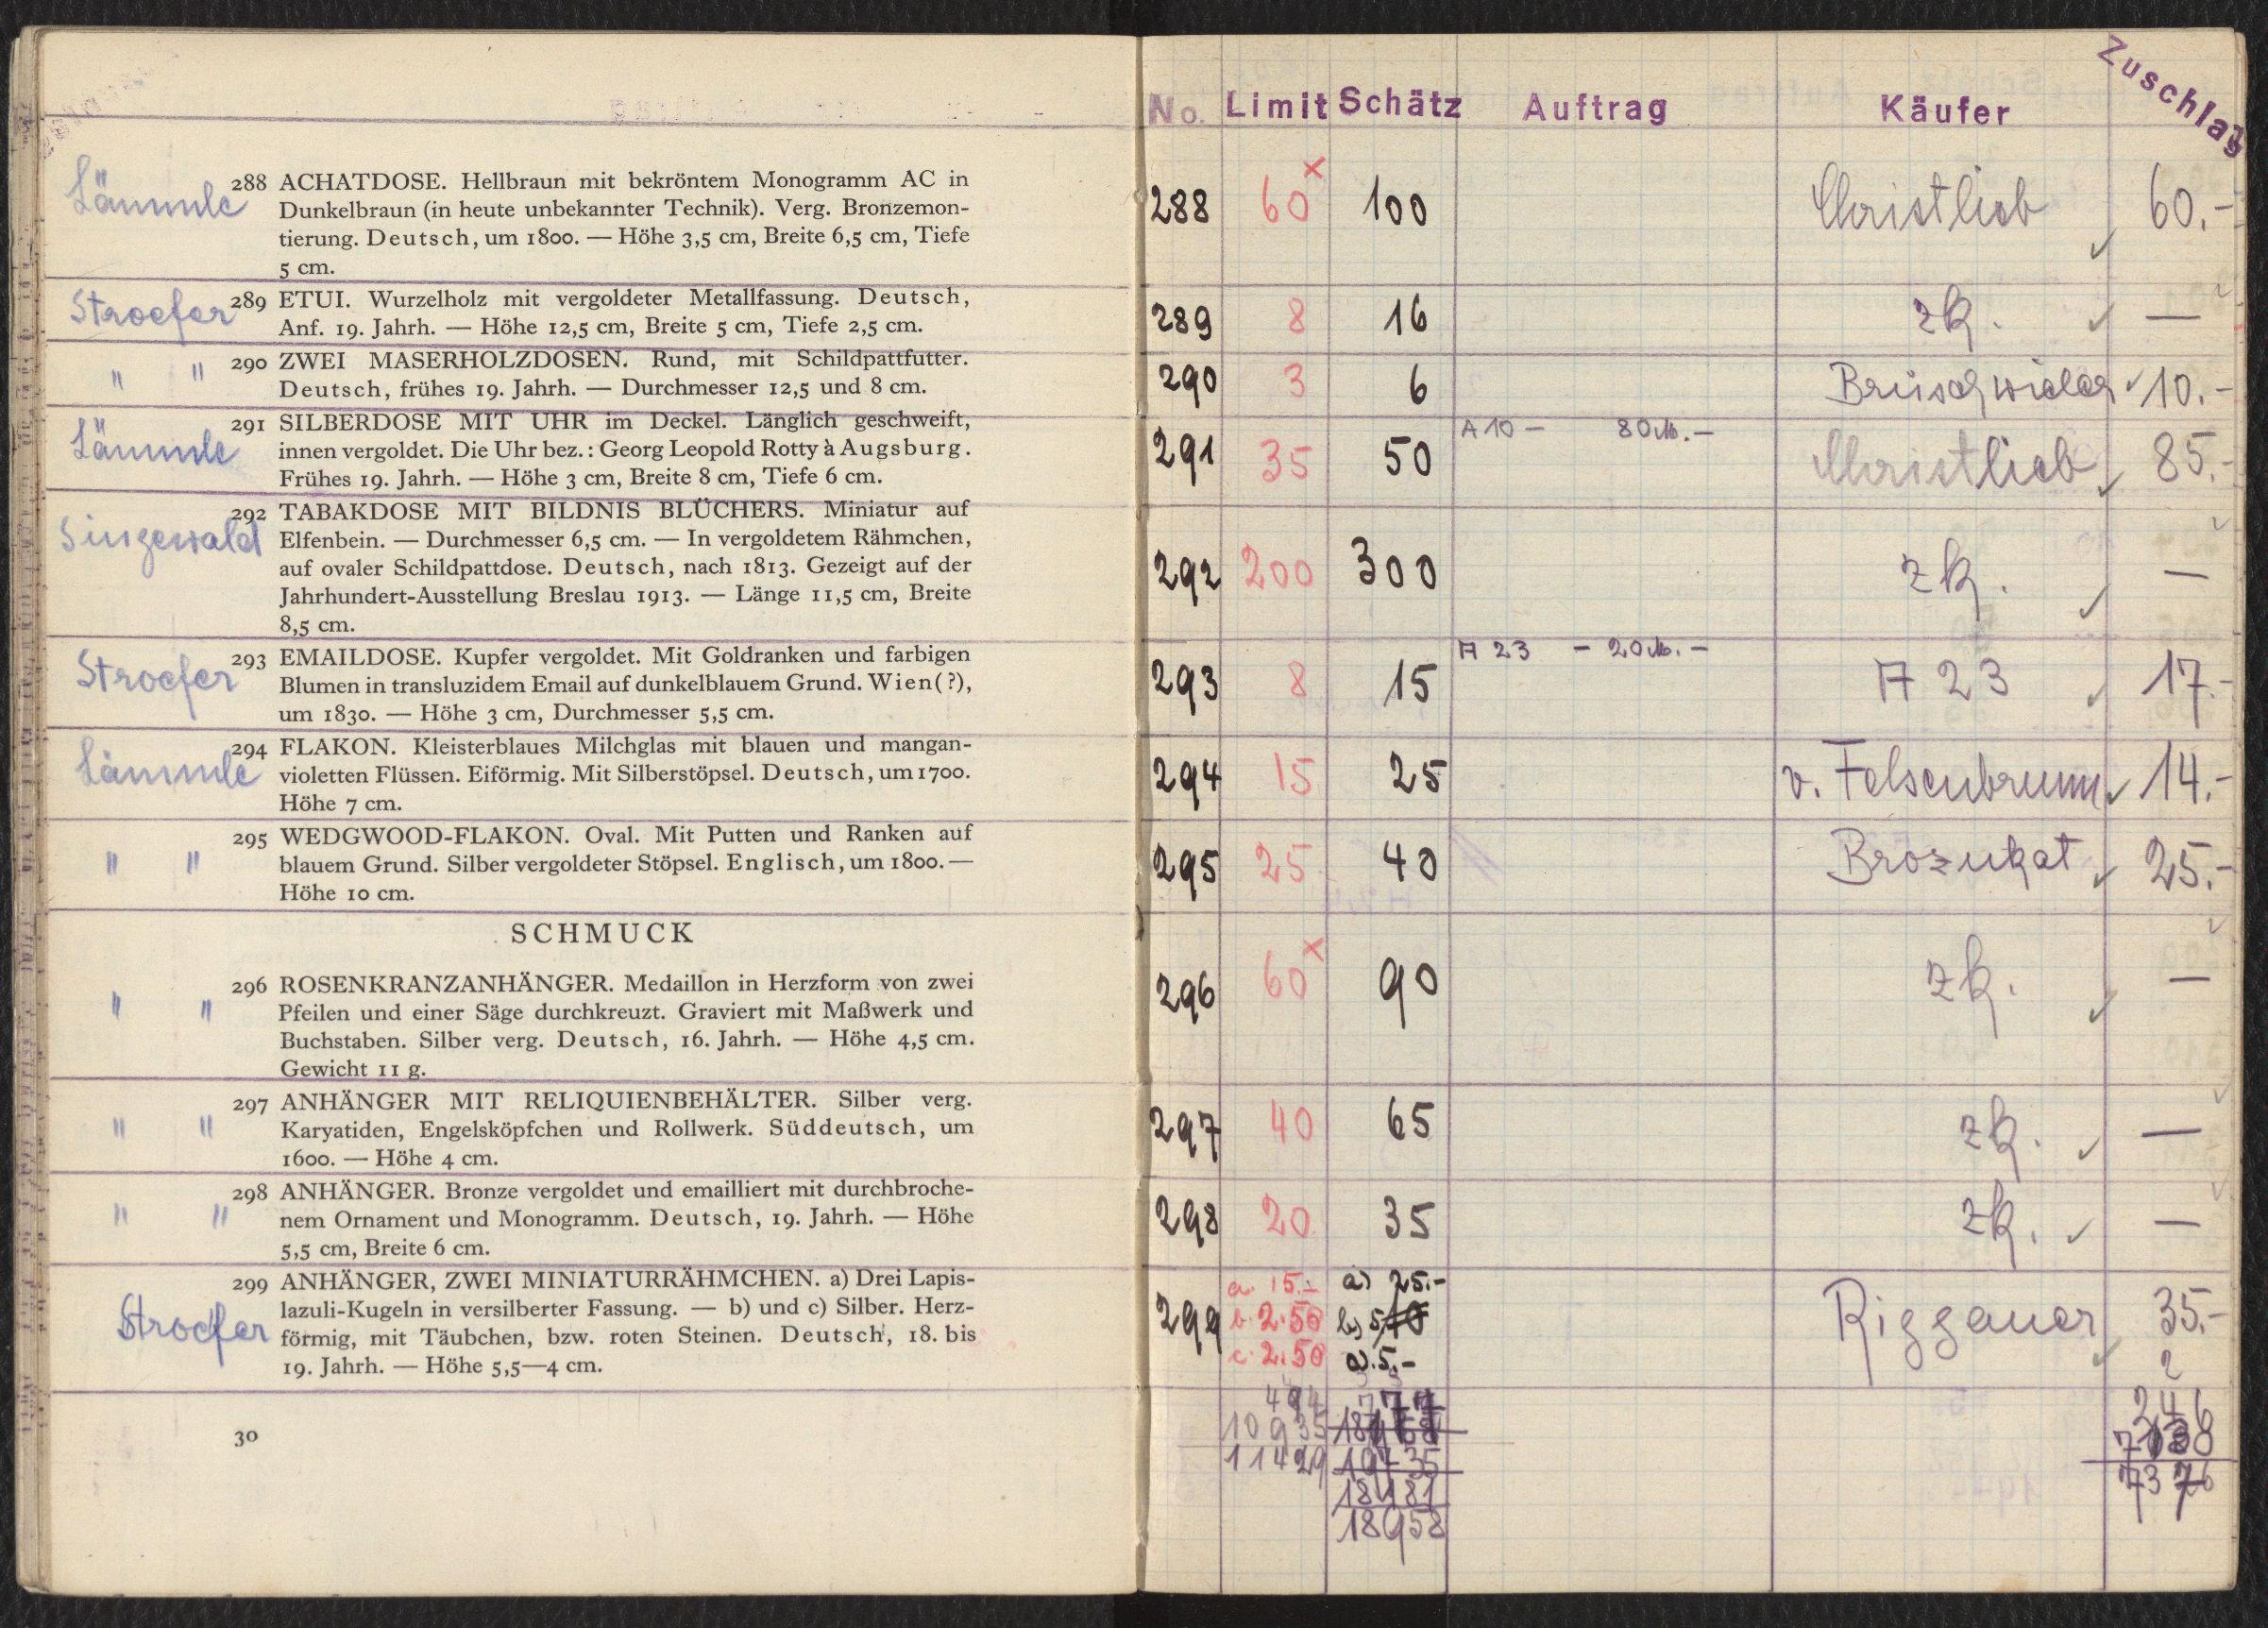 Lämmle 288 ACHATDOSE. Hellbraun mit bekröntem Monogramm AC in
Dunkelbraun (in heute unbekannter Technik). Verg. Bronzemon-
tierung. Deutsch, um 1800. — Höhe 3,5 cm, Breite 6,5 cm, Tiefe
5 cm.
Stroefer 289 ETUI. Wurzelholz mit vergoldeter Metallfassung. Deutsch,
Anf. 19. Jahrh. — Höhe 12,5 cm, Breite 5 cm, Tiefe 2,5 cm.
" " 290 ZWEI MASERHOLZDOSEN. Rund, mit Schildpattfutter.
Deutsch, frühes 19. Jahrh. — Durchmesser 12,5 und 8 cm.
291 SILBERDOSE MIT UHR im Deckel. Länglich geschweift,
Lämmle innen vergoldet. Die Uhr bez.: Georg Leopold Rotty à Augsburg.
Frühes 19. Jahrh. — Höhe 3 cm, Breite 8 cm, Tiefe 6 cm.
292 TABAKDOSE MIT BILDNIS BLÜCHERS. Miniatur auf
Singewald Elfenbein. — Durchmesser 6,5 cm. — In vergoldetem Rähmchen,
auf ovaler Schildpattdose. Deutsch, nach 1813. Gezeigt auf der
Jahrhundert-Ausstellung Breslau 1913. — Länge 11,5 cm, Breite
8,5 cm.
Stroefer 293 EMAILDOSE. Kupfer vergoldet. Mit Goldranken und farbigen
Blumen in transluzidem Email auf dunkelblauem Grund. Wien(?),
um 1830. — Höhe 3 cm, Durchmesser 5,5 cm.
294 FLAKON. Kleisterblaues Milchglas mit blauen und mangan-
Lämmle violetten Flüssen. Eiförmig. Mit Silberstöpsel. Deutsch, um 1700.
Höhe 7 cm.
295 WEDGWOOD-FLAKON. Oval. Mit Putten und Ranken auf
" " blauem Grund. Silber vergoldeter Stöpsel. Englisch, um 1800. —
Höhe 10 cm.
SCHMUCK
296 ROSENKRANZANHÄNGER. Medaillon in Herzform von zwei
" " Pfeilen und einer Säge durchkreuzt. Graviert mit Maßwerk und
Buchstaben. Silber verg. Deutsch, 16. Jahrh. — Höhe 4,5 cm.
Gewicht 11 g.
297 ANHÄNGER MIT RELIQUIENBEHÄLTER. Silber verg.
" " Karyatiden, Engelsköpfchen und Rollwerk. Süddeutsch, um
1600. — Höhe 4 cm.
298 ANHÄNGER. Bronze vergoldet und emailliert mit durchbroche-
" " nem Ornament und Monogramm. Deutsch, 19. Jahrh. — Höhe
5,5 cm, Breite 6 cm.
299 ANHÄNGER, ZWEI MINIATURRÄHMCHEN. a) Drei Lapis-
lazuli-Kugeln in versilberter Fassung. — b) und c) Silber. Herz-
Stroefer förmig, mit Täubchen, bzw. roten Steinen. Deutsch, 18. bis
19. Jahrh. — Höhe 5,5—4 cm.
30
No. Limit Schätz Auftrag Käufer Zuschlag
288 60 x 100 Christlieb ✓ 60.-
289 8 16 zk. ✓ —
290 3 6 Brüschwieler ✓ 10.-
A 10 – 80 M. –
291 35 50 Christlieb ✓ 85.-
292 200 300 zk. ✓ —
A 23 – 20 M. –
293 8 15 A 23 ✓ 17.-
294 15 25 v. Felsenbrunn ✓ 14.-
295 25 40 Brozukat ✓ 25.-
296 60 x 90 zk. ✓ —
297 40 65 zk. ✓ —
298 20 35 zk. ✓ —
a. 15.- a) 25.-
299 b. 2.50 b) 5 10 Riggauer ✓ 35.-
c. 2.50 5.-
494 777 246
10935
11429 19735 7376
18181
18958